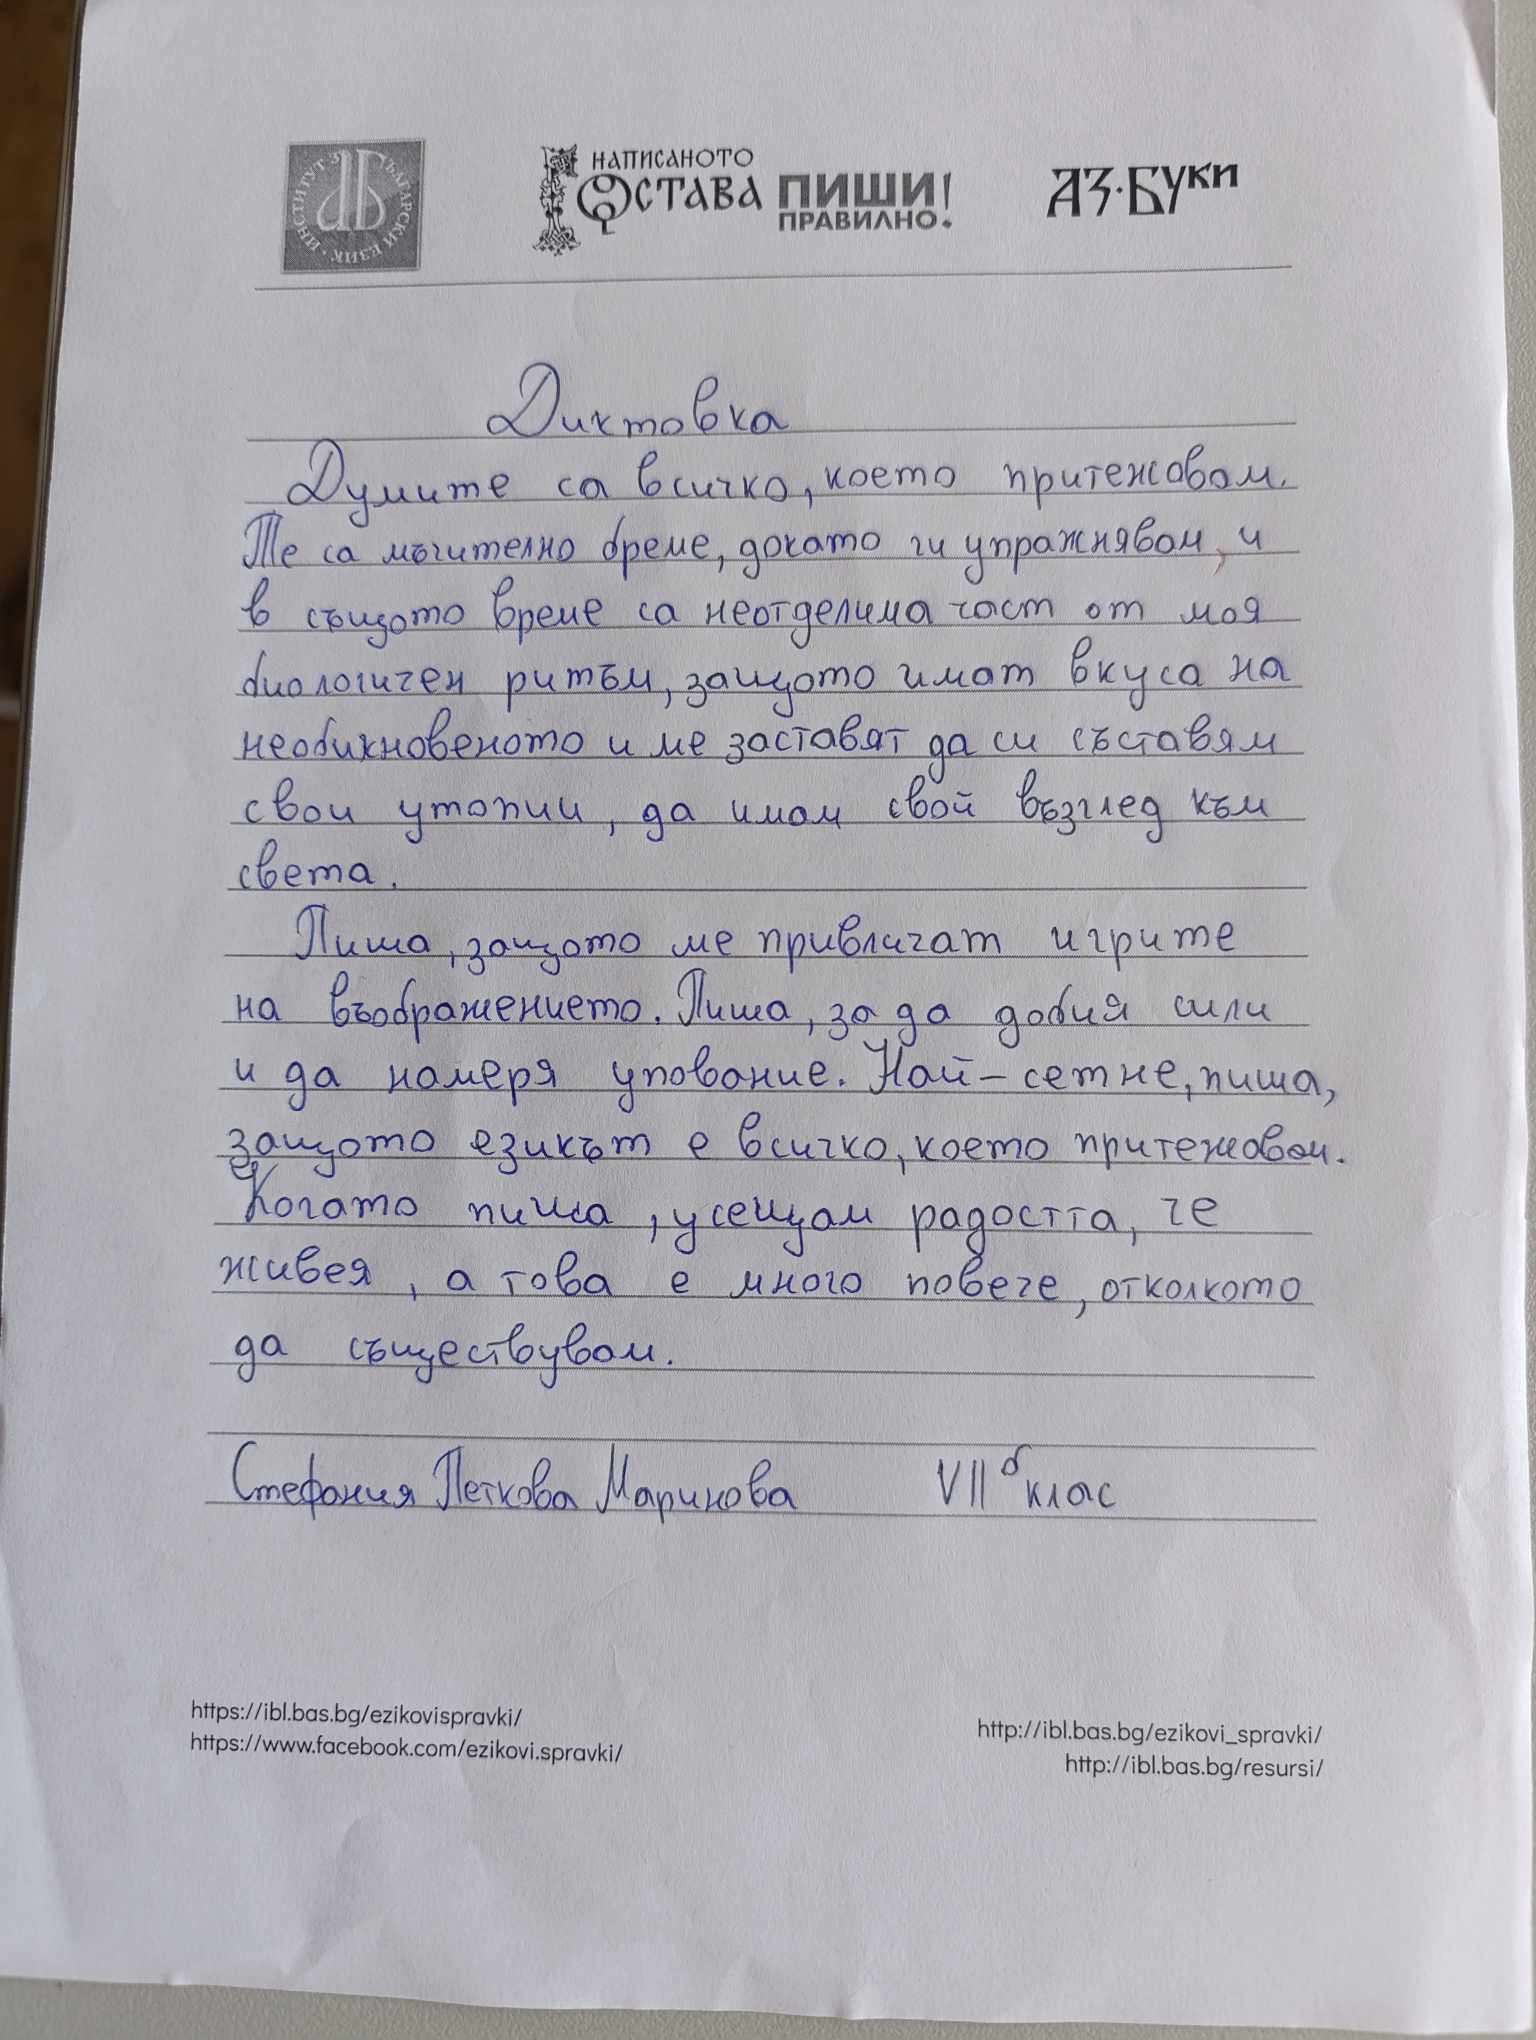 ИНСТИТУТ ЗА БЪЛГАРСКИ ЕЗИК
НАПИСАНОТО
ОСТАВА ПИШИ
ПРАВИЛНО!
АЗ·БУКИ
Диктовка
Думите са всичко, което притежавам.
Те са мъчително бреме, докато ги упражнявам, и
в същото време са неотделима част от моя
биологичен ритъм, защото имат вкуса на
необикновеното и ме заставят да си съставям
свои утопии, да имам свой възглед към
света.
Пиша, защото ме привличат игрите
на въображението. Пиша, за да добия сили
и да намеря упование. Най-сетне, пиша,
защото езикът е всичко, което притежавам.
Когато пиша, усещам радостта, че
живея, а това е много повече, отколкото
да съществувам.
Стефания Петкова Маринова VII б клас
https://ibl.bas.bg/ezikovispravki/
https://www.facebook.com/ezikovi.spravki/
http://ibl.bas.bg/ezikovi_spravki/
http://ibl.bas.bg/resursi/